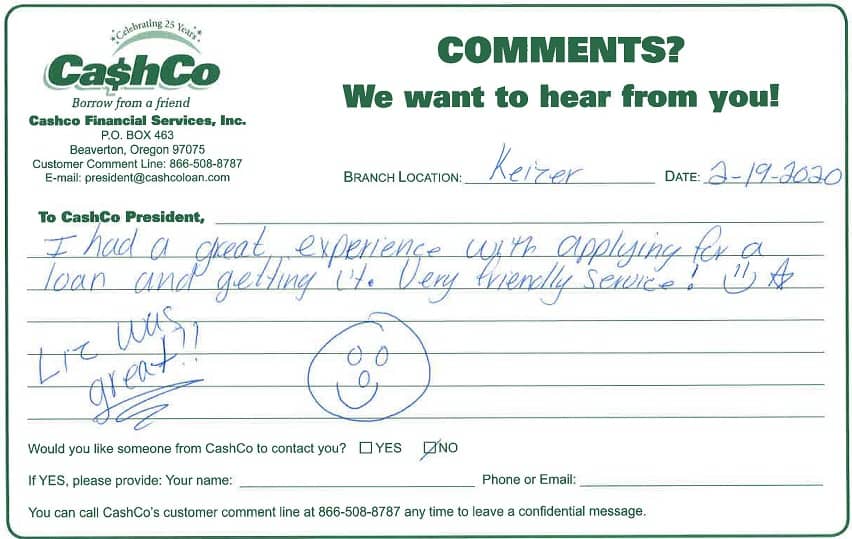 Celebrating 25 Years
Ca$hCo
Borrow from a friend
Cashco Financial Services, Inc.
P.O. BOX 463
Beaverton, Oregon 97075
Customer Comment Line: 866-508-8787
E-mail: president@cashcoloan.com
COMMENTS?
We want to hear from you!
BRANCH LOCATION: Keizer DATE: 2-19-2020
To CashCo President,
I had a great experience with applying for a
loan and getting it. Very friendly service!
Liz was
great!!
Would you like someone from CashCo to contact you? YES NO
If YES, please provide: Your name: Phone or Email:
You can call CashCo's customer comment line at 866-508-8787 any time to leave a confidential message.